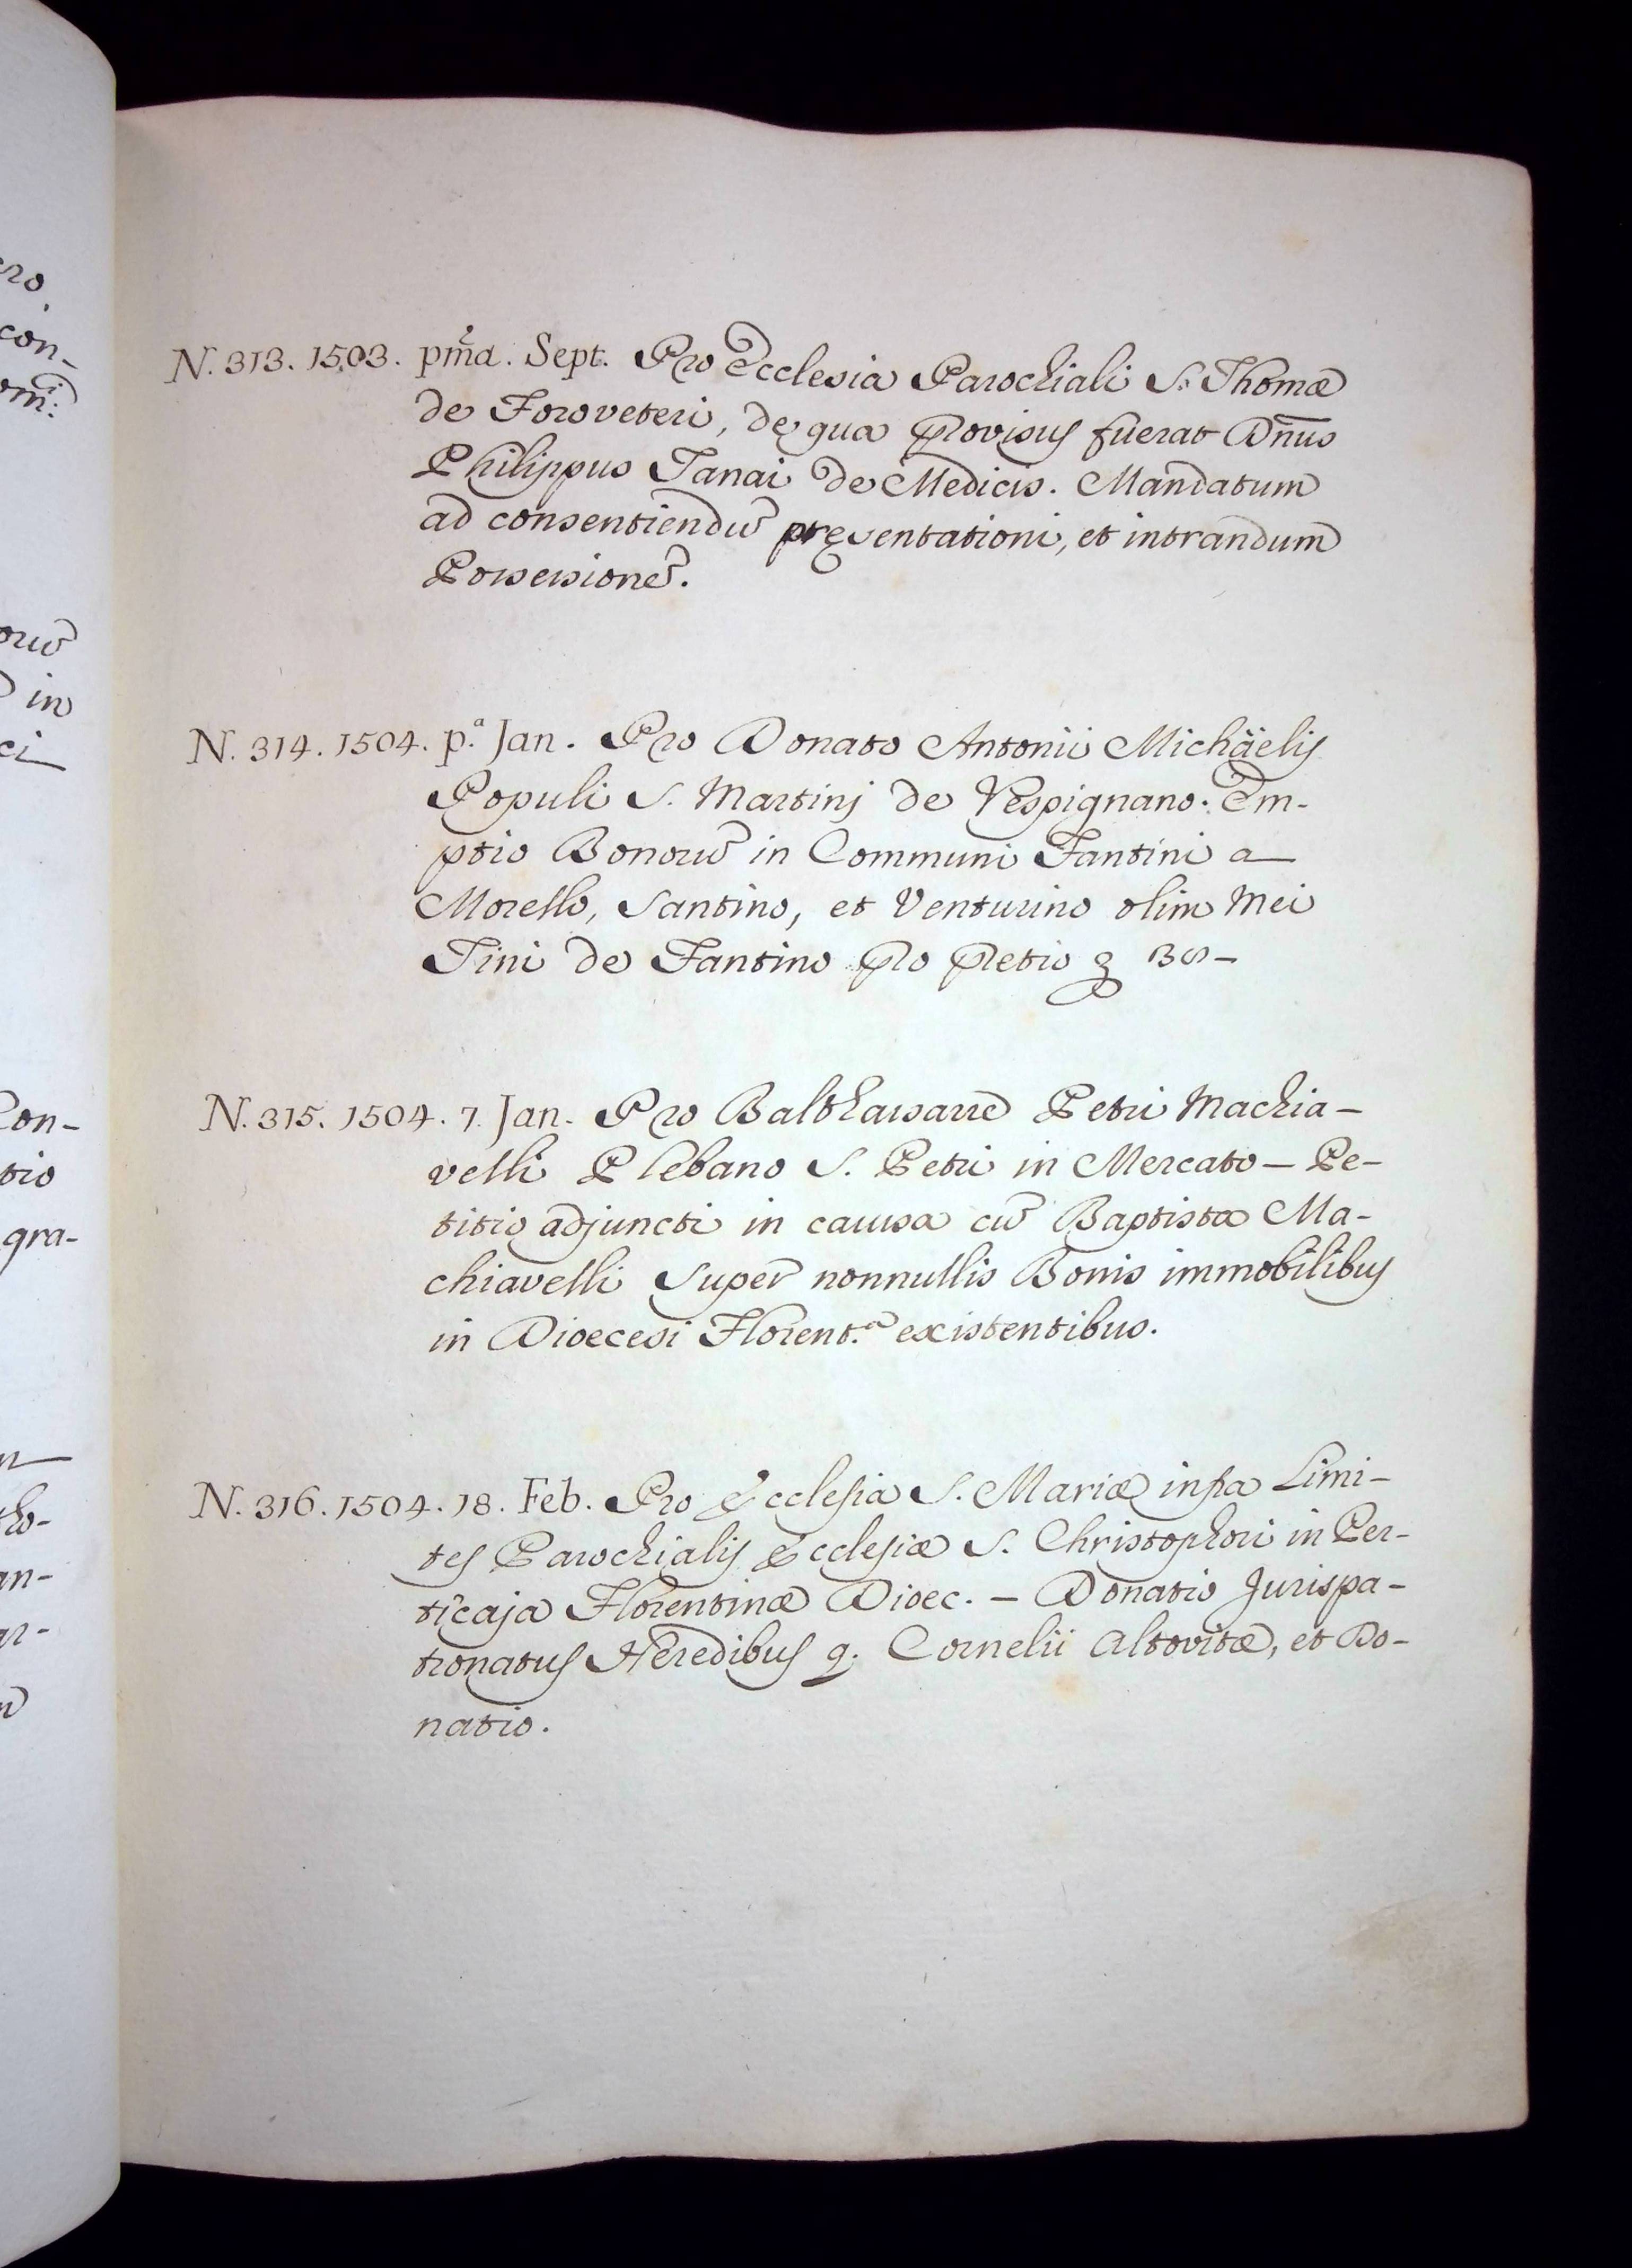 N. 313. 1503. pm̃a. Sept. Pro Ecclesia Parochiali S. Thomæ
de Foroveteri, de qua provisus fuerat Dn̄us
Philippus Tanai de Medicis. Mandatum
ad consentiendũ pręsentationi, et intrandum
Possessionẽ.
N. 314. 1504. p.ª Jan. Pro Donato Antonii Michäelis
Populi S. Martinj de Vespignano. Em-
ptio Bonorũ in Communi Fantini a
Morello, Santino, et Venturino olim Mei
Tini de Fantino pro pretio
N. 315. 1504. 7. Jan. Pro Balthassarre Petri Machia-
velli Plebano S. Petri in Mercato — Pe-
titio adjuncti in caussa cũ Baptista Ma-
chiavelli super nonnullis Bonis immobilibus
in Dioecesi Florent.ª existentibus.
N. 316. 1504. 18. Feb. Pro Ecclesia S. Mariæ infra Limi-
tes Parochialis Ecclesiæ S. Christophori in Per-
ticaja Florentinæ Dioec. — Donatio Jurispa-
tronatus Heredibus q. Cornelii Altovitæ, et Do-
natio.
ero
con-
orũ
in
ci
Con-
tio
gra-